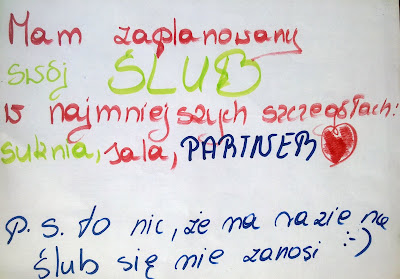 Mam zaplanowany
swój ŚLUB
w najmniejszych szczegółach:
suknia, sala, PARTNER
P.S. to nic, że na razie na
ślub się nie zanosi :-)